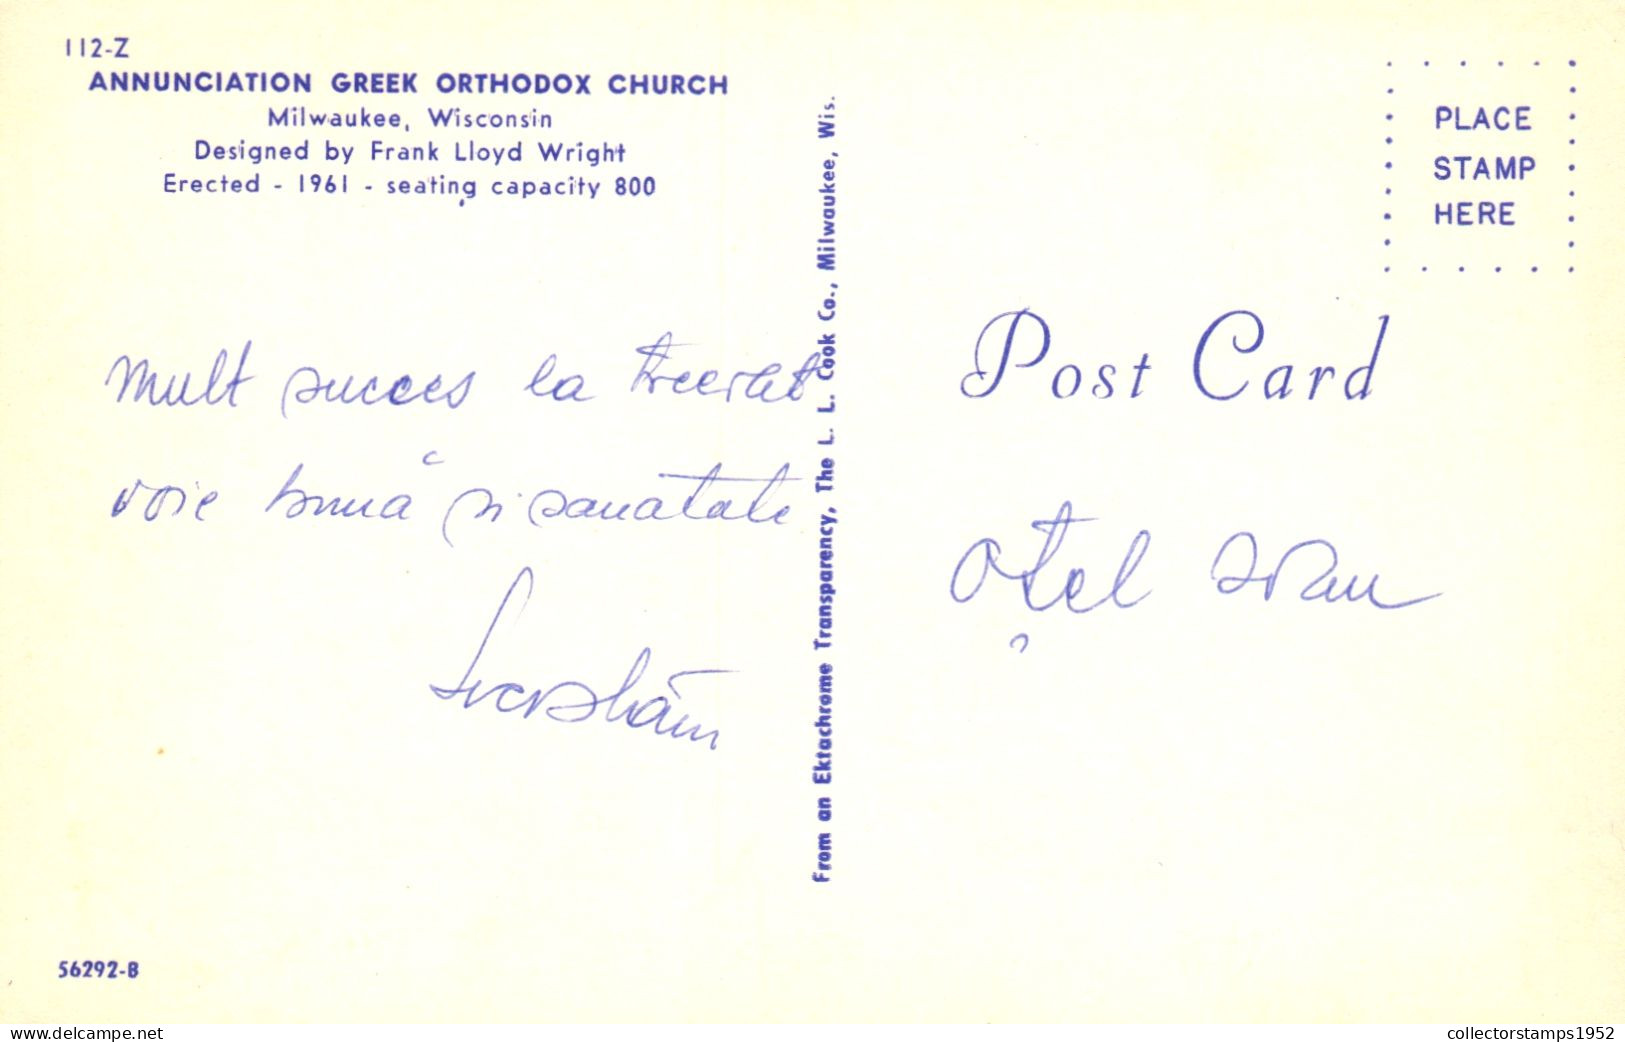 112-Z
ANNUNCIATION GREEK ORTHODOX CHURCH
Milwaukee, Wisconsin
Designed by Frank Lloyd Wright
Erected - 1961 - seating capacity 800
Mult succes la
voie bună și sănătate
From an Ektachrome Transparency, The L. L. Cook Co., Milwaukee, Wis.
PLACE
STAMP
HERE
Post Card
Oțel
56292-B
www.delcampe.net
collectorstamps1952